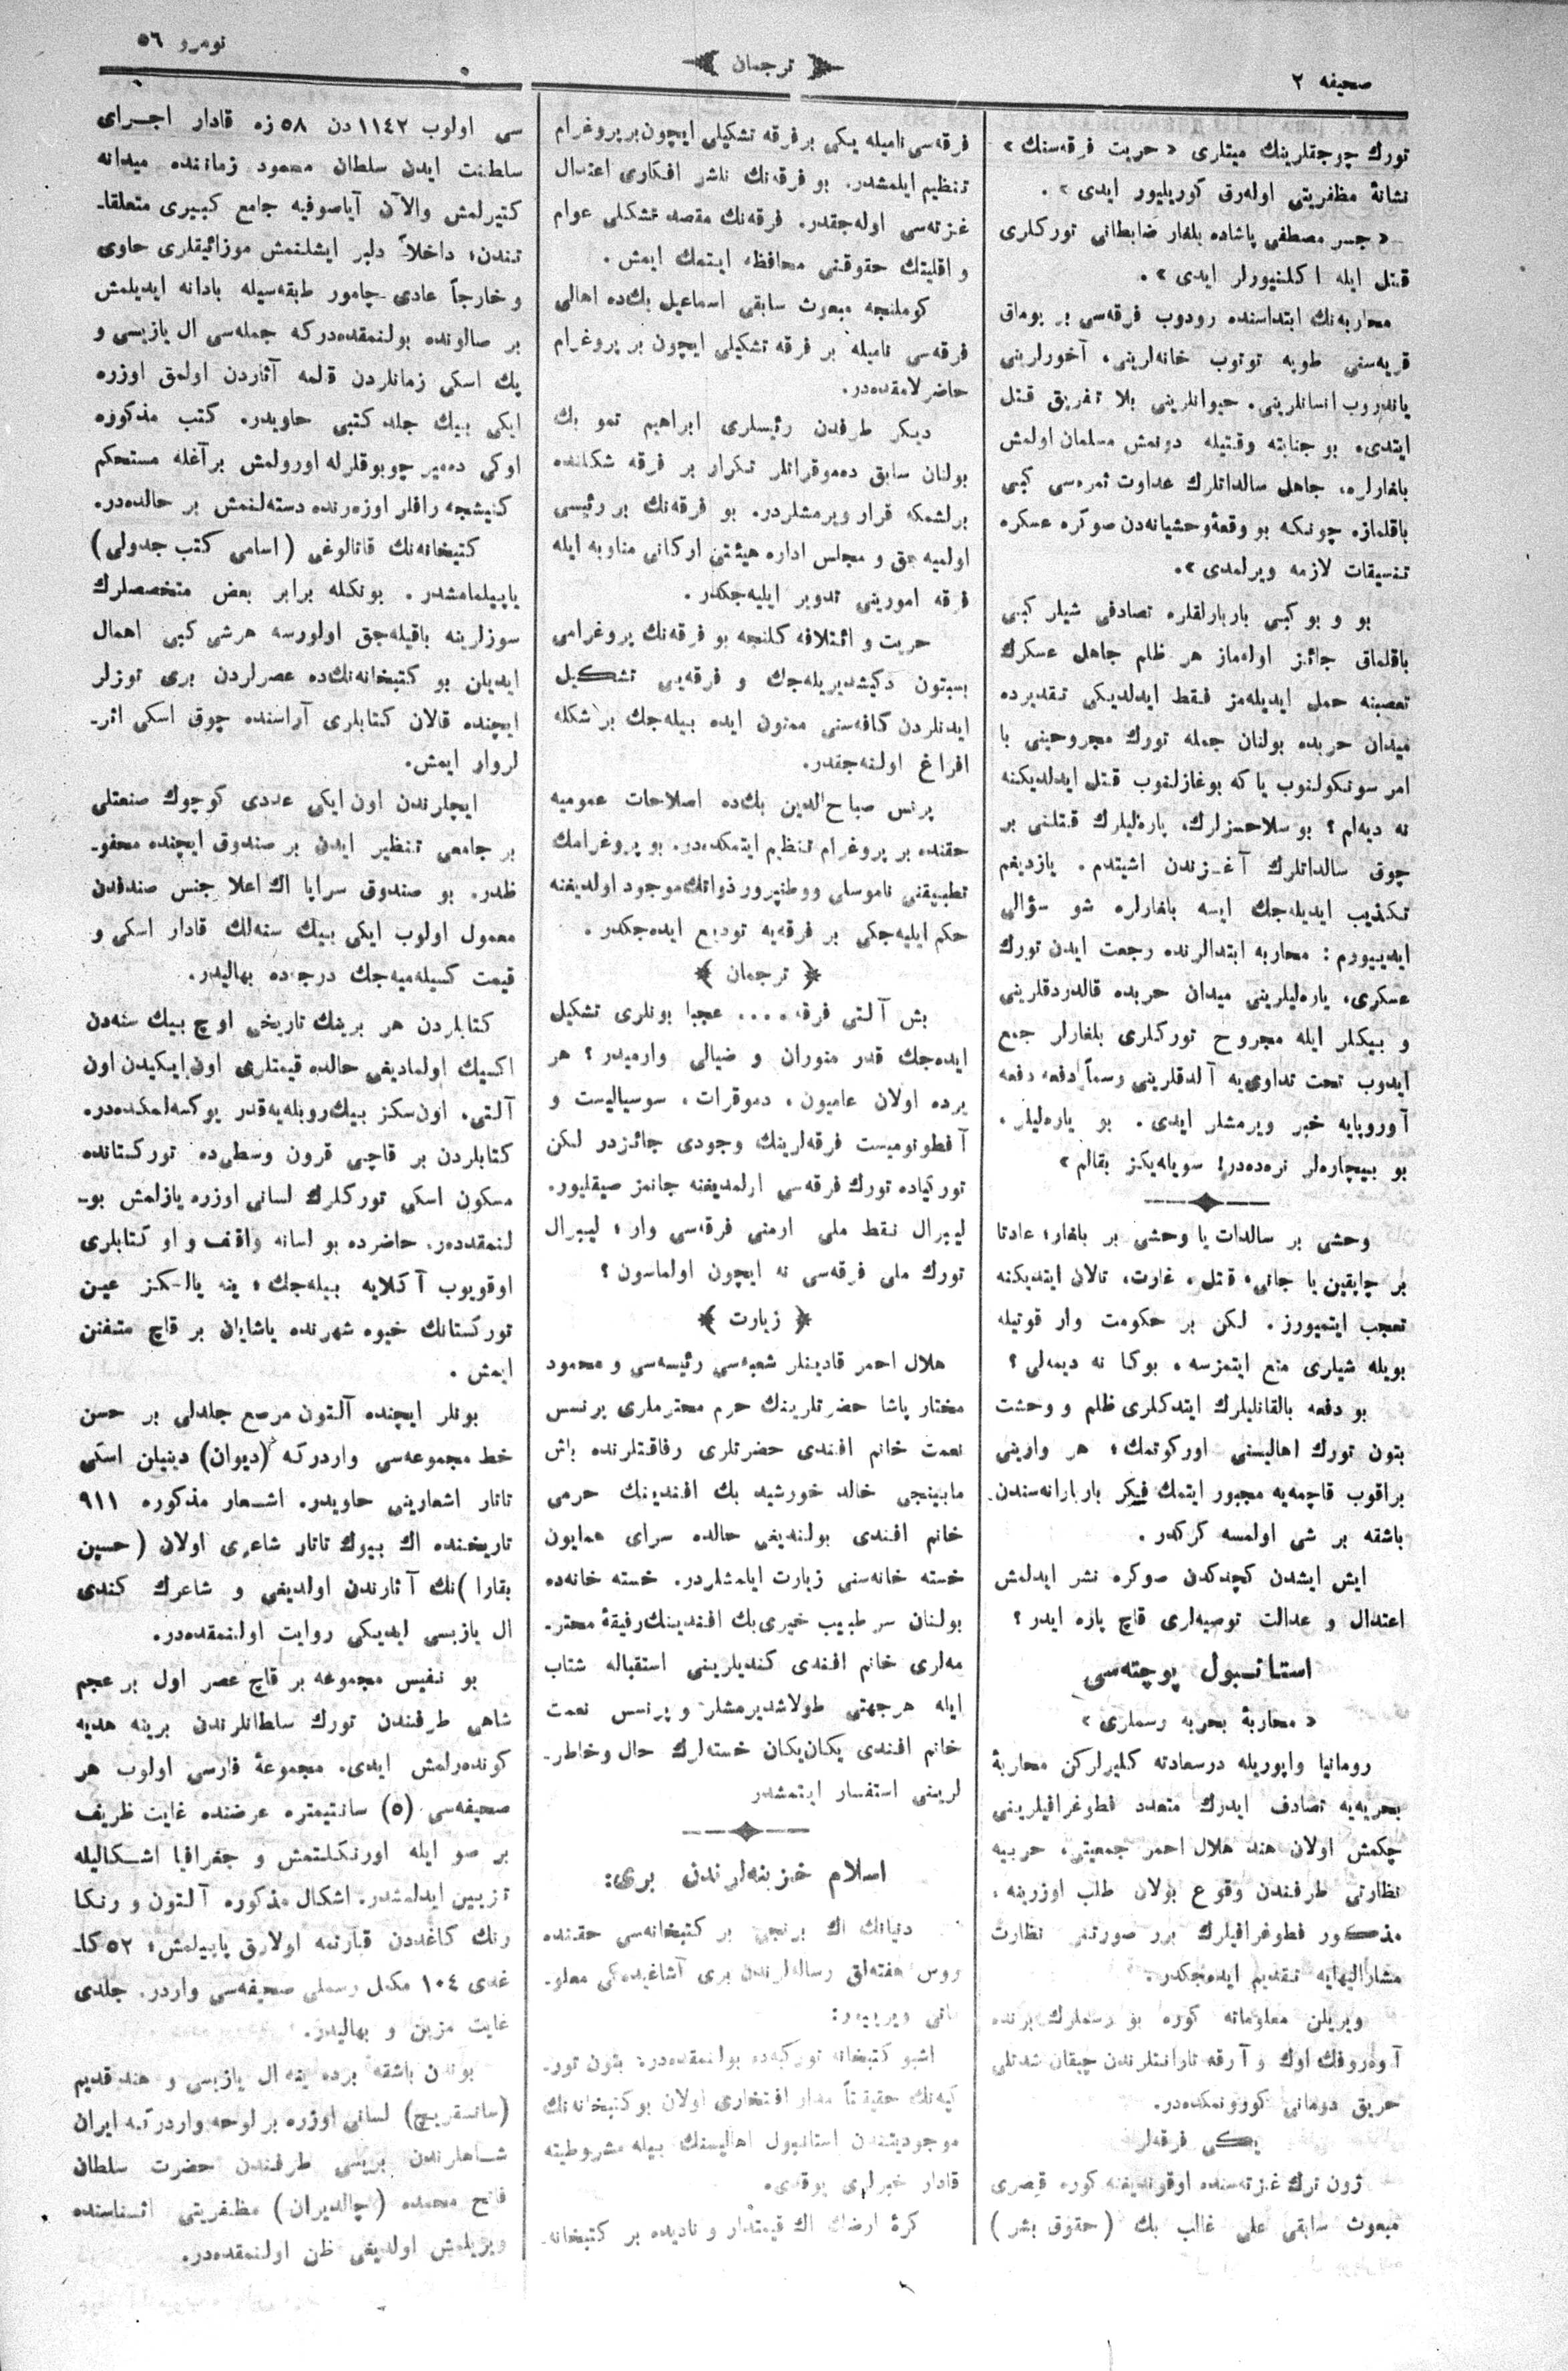 صحیفه ٢
ترجمان
نومرو ٥٦
تورك چوجقلرینك میتلری « حریت فرقه‌سنك »
نشانهٔ مظفریتی اوله‌رق كوریلیور ایدی » .
« جسر مصطفی پاشاده بلغار ضابطانی توركلری
قتل ایله اكلنیورلر ایدی » .
محاربه‌نك ابتداسنده رودوپ فرقه‌سی بر پوماق
قریه‌سنی طوپه توتوب خانه‌لرینی، آخورلرینی
یاندروب انسانلرینی. حیوانلرینی بلا تفریق قتل
ایتدی، بو جنایته وقتیله دونمش مسلمان اولمش
بلغارلره، جاهل سالداتلرك عداوت ثمره‌سی كبی
باقلماز، چونكه بو وقعهٔ وحشیانه‌دن صوكره عسكره
تنسیقات لازمه ویرلمدی ».
بو و بو كبی باربارلقلره تصادفی شیلر كبی
باقلماق جائز اولماز هر ظلم جاهل عسكرك
تعصبنه حمل ایدیله‌مز فقط ایدلدیكی تقدیرده
میدان حربده بولنان جمله تورك مجروحینی با
امر سونكولنوب یا كه بوغازلنوب قتل ایدلدیكنه
نه دیه‌لم ؟ بو سلاحسزلرك، یاره‌لیلرك قتلنی بر
چوق سالداتلرك آغـزندن اشیتدم . یازدیغم
تكذیب ایدیله‌جك ایسه بلغارلره شو سؤالی
ایدییورم : محاربه ابتدالرنده رجعت ایدن تورك
عسكری، یاره‌لیلرینی میدان حربده قالدردقلرینی
و بیكلر ایله مجروح توركلری بلغارلر جمع
ایدوب تحت تداوی‌یه آلدقلرینی رسماً دفعه دفعه
آوروپایه خبر ویرمشلر ایدی . بو یاره‌لیلر .
بو بیچاره‌لر نره‌ده‌در! سویله‌یكز بقالم »
وحشی بر سالدات یا وحشی بر بلغار؛ عادتا
بر چاپقین یا جانی، قتل، غارت، تالان ایتدیكنه
تعجب ایتمیورز. لكن بر حكومت وار قوتیله
بویله شیلری منع ایتمزسه، بوكا نه دیمه‌لی ؟
بو دفعه بالقانلیلرك ایتدكلری ظلم و وحشت
بتون تورك اهالیسنی اوركوتمك؛ هر وارینی
براقوب قاچمه‌یه مجبور ایتمك فیكر باربارانه‌سندن
باشقه بر شی اولمسه كركدر .
ایش ایشدن كچدكدن صوكره نشر ایدلمش
اعتدال و عدالت توصیه‌لری قاچ پاره ایدر ؟
استانـبول پوچته‌سی
« محاربهٔ بحریه رسملری »
رومانیا واپوریله درسعادته كلیرلركن محاربهٔ
بحریه‌یه تصادف ایدرك متعدد فطوغرافیلرینی
چكمش اولان هند هلال احمر جمعیتی، حربیه
نظارتی طرفندن وقوع بولان طلب اوزرینه،
مذكور فطوغرافیلرك برر صورتنی نظارت
مشارالیهایه تقدیم ایده‌جكدر.
ویریلن معلوماته كوره بو رسملرك برنده
آوه‌روفك اوك و آرقه تارانتلرندن چیقان شدتلی
حریق دومانی كورونمكده‌در.
یكی فرقه‌لر
ژون ترك غزته‌سنده اوقوندیغنه كوره قیصری
مبعوث سابقی علی غالب بك ( حقوق بشر )
فرقه‌سی نامیله یكی بر فرقه تشكیلی ایچون بر پروغرام
تنظیم ایلمشدر. بو فرقه‌نك ناشر افكاری اعتدال
غزته‌سی اوله‌جقدر. فرقه‌نك مقصد تشكلی عوام
و اقلیتك حقوقنی محافظه ایتمك ایمش .
كوملنجه مبعوث سابقی اسماعیل بك‌ده اهالی
فرقه‌سی نامیله بر فرقه تشكیلی ایچون بر پروغرام
حاضرلامقده‌در.
دیكر طرفدن رئیسلری ابراهیم تمو بك
بولنان سابق ده‌موقراتلر تكرار بر فرقه شكلنده
برلشمكه قرار ویرمشلردر. بو فرقه‌نك بر رئیسی
اولمیه‌جق و مجلس اداره هیئتی اركانی مناوبه ایله
فرقه امورینی تدویر ایلیه‌جكدر.
حریت و ائتلافه كلنجه بو فرقه‌نك پروغرامی
بسبتون دكیشدیریله‌جك و فرقه‌یی تشكیل
ایدنلردن كافه‌سنی ممنون ایده بیله‌جك بر شكله
افراغ اولنه‌جقدر.
پرنس صباح‌الدین بك‌ده اصلاحات عمومیه
حقنده بر پروغرام تنظیم ایتمكده‌در. بو پروغرامك
تطبیقنی ناموسلی و وطنپرور ذواتك موجود اولدیغنه
حكم ایلیه‌جكی بر فرقه‌یه تودیع ایده‌جكدر .
ترجمان
بش آلتی فرقه .... عجبا بونلری تشكیل
ایده‌جك قدر منوران و ضیالی وارمیدر؟ هر
یرده اولان عامیون، دموقرات، سوسیالیست و
آفطونومیست فرقه‌لرینك وجودی جائزدر لكن
توركیاده تورك فرقه‌سی اولمدیغنه جانمز صیقلیور.
لیبرال فقط ملی ارمنی فرقه‌سی وار؛ لیبرال
تورك ملی فرقه‌سی نه ایچون اولماسون؟
زیارت
هلال احمر قادینلر شعبه‌سی رئیسه‌سی و محمود
مختار پاشا حضرتلرینك حرم محترملری پرنسس
نعمت خانم افندی حضرتلری رفاقتلرنده باش
مابینجی خالد خورشید بك افندینك حرمی
خانم افندی بولندیغی حالده سرای همایون
خسته خانه‌سنی زیارت ایلمشلردر. خسته خانه‌ده
بولنان سر طبیب خیری بك افندینك رفیقهٔ محتر۔
مه‌لری خانم افندی كندیلرینی استقباله شتاب
ایله هر جهتی طولاشدیرمشلر و پرنسس نعمت
خانم افندی یكان یكان خسته‌لرك حال و خاطر۔
لرینی استفسار ایتمشدر
اسلام خزینه‌لرندن بری:
دنیانك اك برنجی بر كتبخانه‌سی حقنده
روس هفته‌لق رساله‌لرندن بری آشاغیده‌كی معلو۔
ماتی ویرییور:
اشبو كتبخانه توركیه‌ده بولنمقده‌در: بتون تور۔
كیه‌نك حقیقتاً مدار افتخاری اولان بو كتبخانه‌نك
موجودیتندن استانبول اهالیسنك بیله مشروطیته
قادار خبرلری یوقدی.
كرهٔ ارضك اك قیمتدار و نادیده بر كتبخانه۔
سی اولوب ١١٤٢ دن ٥٨ زه قادار اجـرای
سلطنت ایدن سلطان محمود زماننده میدانه
كتیرلمش والآن آیاصوفیه جامع كبیری متعلقا۔
تندن؛ داخلاً دلبر ایشلنمش موزائیقلری حاوی
و خارجاً عادی چامور طبقه‌سیله بادانه ایدیلمش
بر صالونده بولنمقده‌دركه جمله‌سی ال یازیسی و
پك اسكی زمانلردن قلمه آثاردن اولمق اوزره
ایكی بیك جلد كتبی حاویدر. كتب مذكوره
اوكی ده‌میر چوبوقلرله اورولمش بر آغله مستحكم
كنیشجه رافلر اوزه‌رنده دسته‌لنمش بر حالده‌در.
كتبخانه‌نك قاتالوغی (اسامی كتب جدولی)
یاپیلمامشدر. بونكله برابر بعض متخصصلرك
سوزلرینه باقیله‌جق اولورسه هرشی كبی اهمال
ایدیلن بو كتبخانه‌نك‌ده عصرلردن بری توزلر
ایچنده قالان كتابلری آراسنده چوق اسكی اثر۔
لروار ایمش.
ایچلرندن اون ایكی عددی كوچوك صنعتلی
بر جامعی تنظیر ایدن بر صندوق ایچنده محفو۔
ظدر. بو صندوق سراپا اك اعلا جنس صندلدن
معمول اولوب ایكی بیك سنه‌لك قادار اسكی و
قیمت كسیله‌میه‌جك درجه‌ده بهالیدر.
كتابلردن هر برینك تاریخی اوچ بیك سنه‌دن
اكسیك اولمادیغی حالده قیمتلری اون ایكیدن اون
آلتی، اون سكز بیك روبله‌یه‌قدر یوكسه‌لمكده‌در.
كتابلردن بر قاچی قرون وسطی‌ده توركستانده
مسكون اسكی توركلرك لسانی اوزره یازلمش بو۔
لنمقده‌در. حاضرده بو لسانه واقف و او كتابلری
اوقویوب آكلایه بیله‌جك؛ ینه یالـكز عین
توركستانك خیوه شهرنده یاشایان بر قاچ متفنن
ایمش .
بونلر ایچنده آلتون مرصع جلدلی بر حسن
خط مجموعه‌سی واردركه (دیوان) دینیلن اسكی
تاتار اشعارینی حاویدر. اشـعار مذكوره ٩١١
تاریخنده اك بیوك تاتار شاعری اولان ( حسین
بقارا )نك آثارندن اولدیغی و شاعرك كندی
ال یازیسی ایدیكی روایت اولنمقده‌در.
بو نفیس مجموعه بر قاچ عصر اول بر عجم
شاهی طرفندن تورك سلطانلرندن برینه هدیه
كونده‌رلمش ایدی. مجموعهٔ فارسی اولوب هر
صحیفه‌سی (٥) سانتیمتره عرضنده غایت ظریف
بر صو ایله اورنكلنمش و جغرافیا اشـكالیله
تزیین ایدلمشدر. اشكال مذكوره آلتون و رنكا
رنك كاغددن قبارتمه اولارق یاپیلمش؛ ٥٢ كا۔
غدی ١٠٤ مكمل رسملی صحیفه‌سی واردر. جلدی
غایت مزین و بهالیدر.
بوندن باشقه برده ینه ال یازیسی و هند قدیم
(سانسقریـچ) لسانی اوزره بر لوحه واردر كه ایران
شـاهلرندن بریسی طرفندن حضرت سلطان
فاتح محمده (چالدیران) مظفریتی اثـناسنده
ویریلمش اولدیغی ظن اولنمقده‌در.